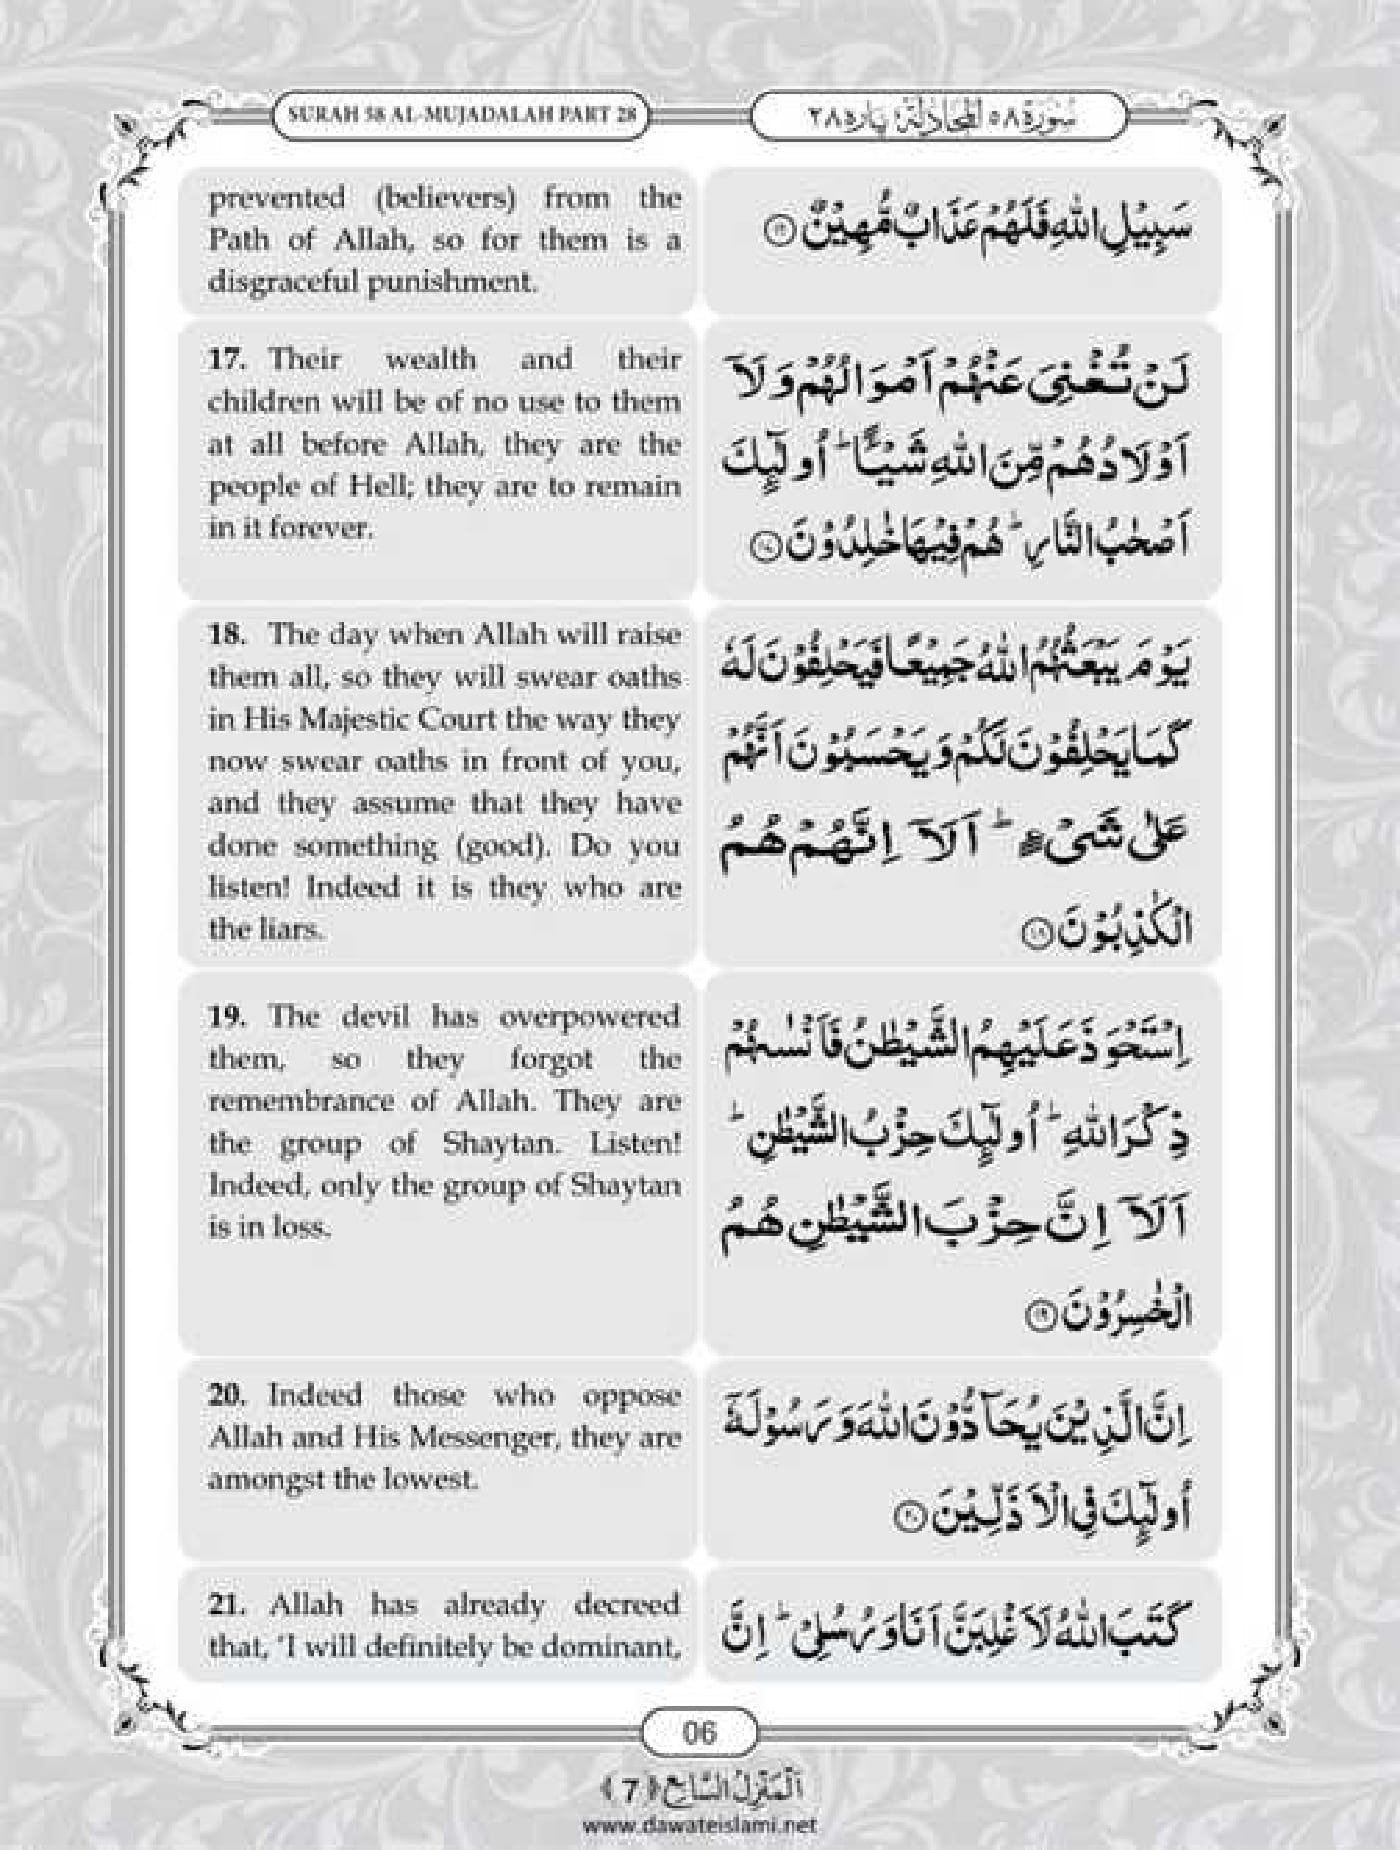 SURAH 58 AL-MUJADALAH PART 28
سُوْرَة ٥٨ اَلْمُجَادَلَة: پارہ ٢٨
prevented (believers) from the
Path of Allah, so for them is a
disgraceful punishment.
سَبِيْلِ اللّٰهِ فَلَهُمْ عَذَابٌ مُّهِيْنٌ ﴿١٦﴾
17. Their wealth and their
children will be of no use to them
at all before Allah, they are the
people of Hell; they are to remain
in it forever.
لَنْ تُغْنِيَ عَنْهُمْ اَمْوَالُهُمْ وَ لَاۤ
اَوْلَادُهُمْ مِّنَ اللّٰهِ شَيْـًٔا ؕ اُولٰٓىِٕكَ
اَصْحٰبُ النَّارِ ؕ هُمْ فِيْهَا خٰلِدُوْنَ ﴿١٧﴾
18. The day when Allah will raise
them all, so they will swear oaths
in His Majestic Court the way they
now swear oaths in front of you,
and they assume that they have
done something (good). Do you
listen! Indeed it is they who are
the liars.
يَوْمَ يَبْعَثُهُمُ اللّٰهُ جَمِيْعًا فَيَحْلِفُوْنَ لَهٗ
كَمَا يَحْلِفُوْنَ لَكُمْ وَ يَحْسَبُوْنَ اَنَّهُمْ
عَلٰى شَيْءٍ ؕ اَلَاۤ اِنَّهُمْ هُمُ
الْكٰذِبُوْنَ ﴿١٨﴾
19. The devil has overpowered
them, so they forgot the
remembrance of Allah. They are
the group of Shaytan. Listen!
Indeed, only the group of Shaytan
is in loss.
اِسْتَحْوَذَ عَلَيْهِمُ الشَّيْطٰنُ فَاَنْسٰىهُمْ
ذِكْرَ اللّٰهِ ؕ اُولٰٓىِٕكَ حِزْبُ الشَّيْطٰنِ ؕ
اَلَاۤ اِنَّ حِزْبَ الشَّيْطٰنِ هُمُ
الْخٰسِرُوْنَ ﴿١٩﴾
20. Indeed those who oppose
Allah and His Messenger, they are
amongst the lowest.
اِنَّ الَّذِيْنَ يُحَآدُّوْنَ اللّٰهَ وَ رَسُوْلَهٗۤ
اُولٰٓىِٕكَ فِي الْاَذَلِّيْنَ ﴿٢٠﴾
21. Allah has already decreed
that, 'I will definitely be dominant,
كَتَبَ اللّٰهُ لَاَغْلِبَنَّ اَنَا وَ رُسُلِيْ ؕ اِنَّ
06
اَلْمَنْزِلُ السَّابِع ﴿7﴾
www.dawateislami.net